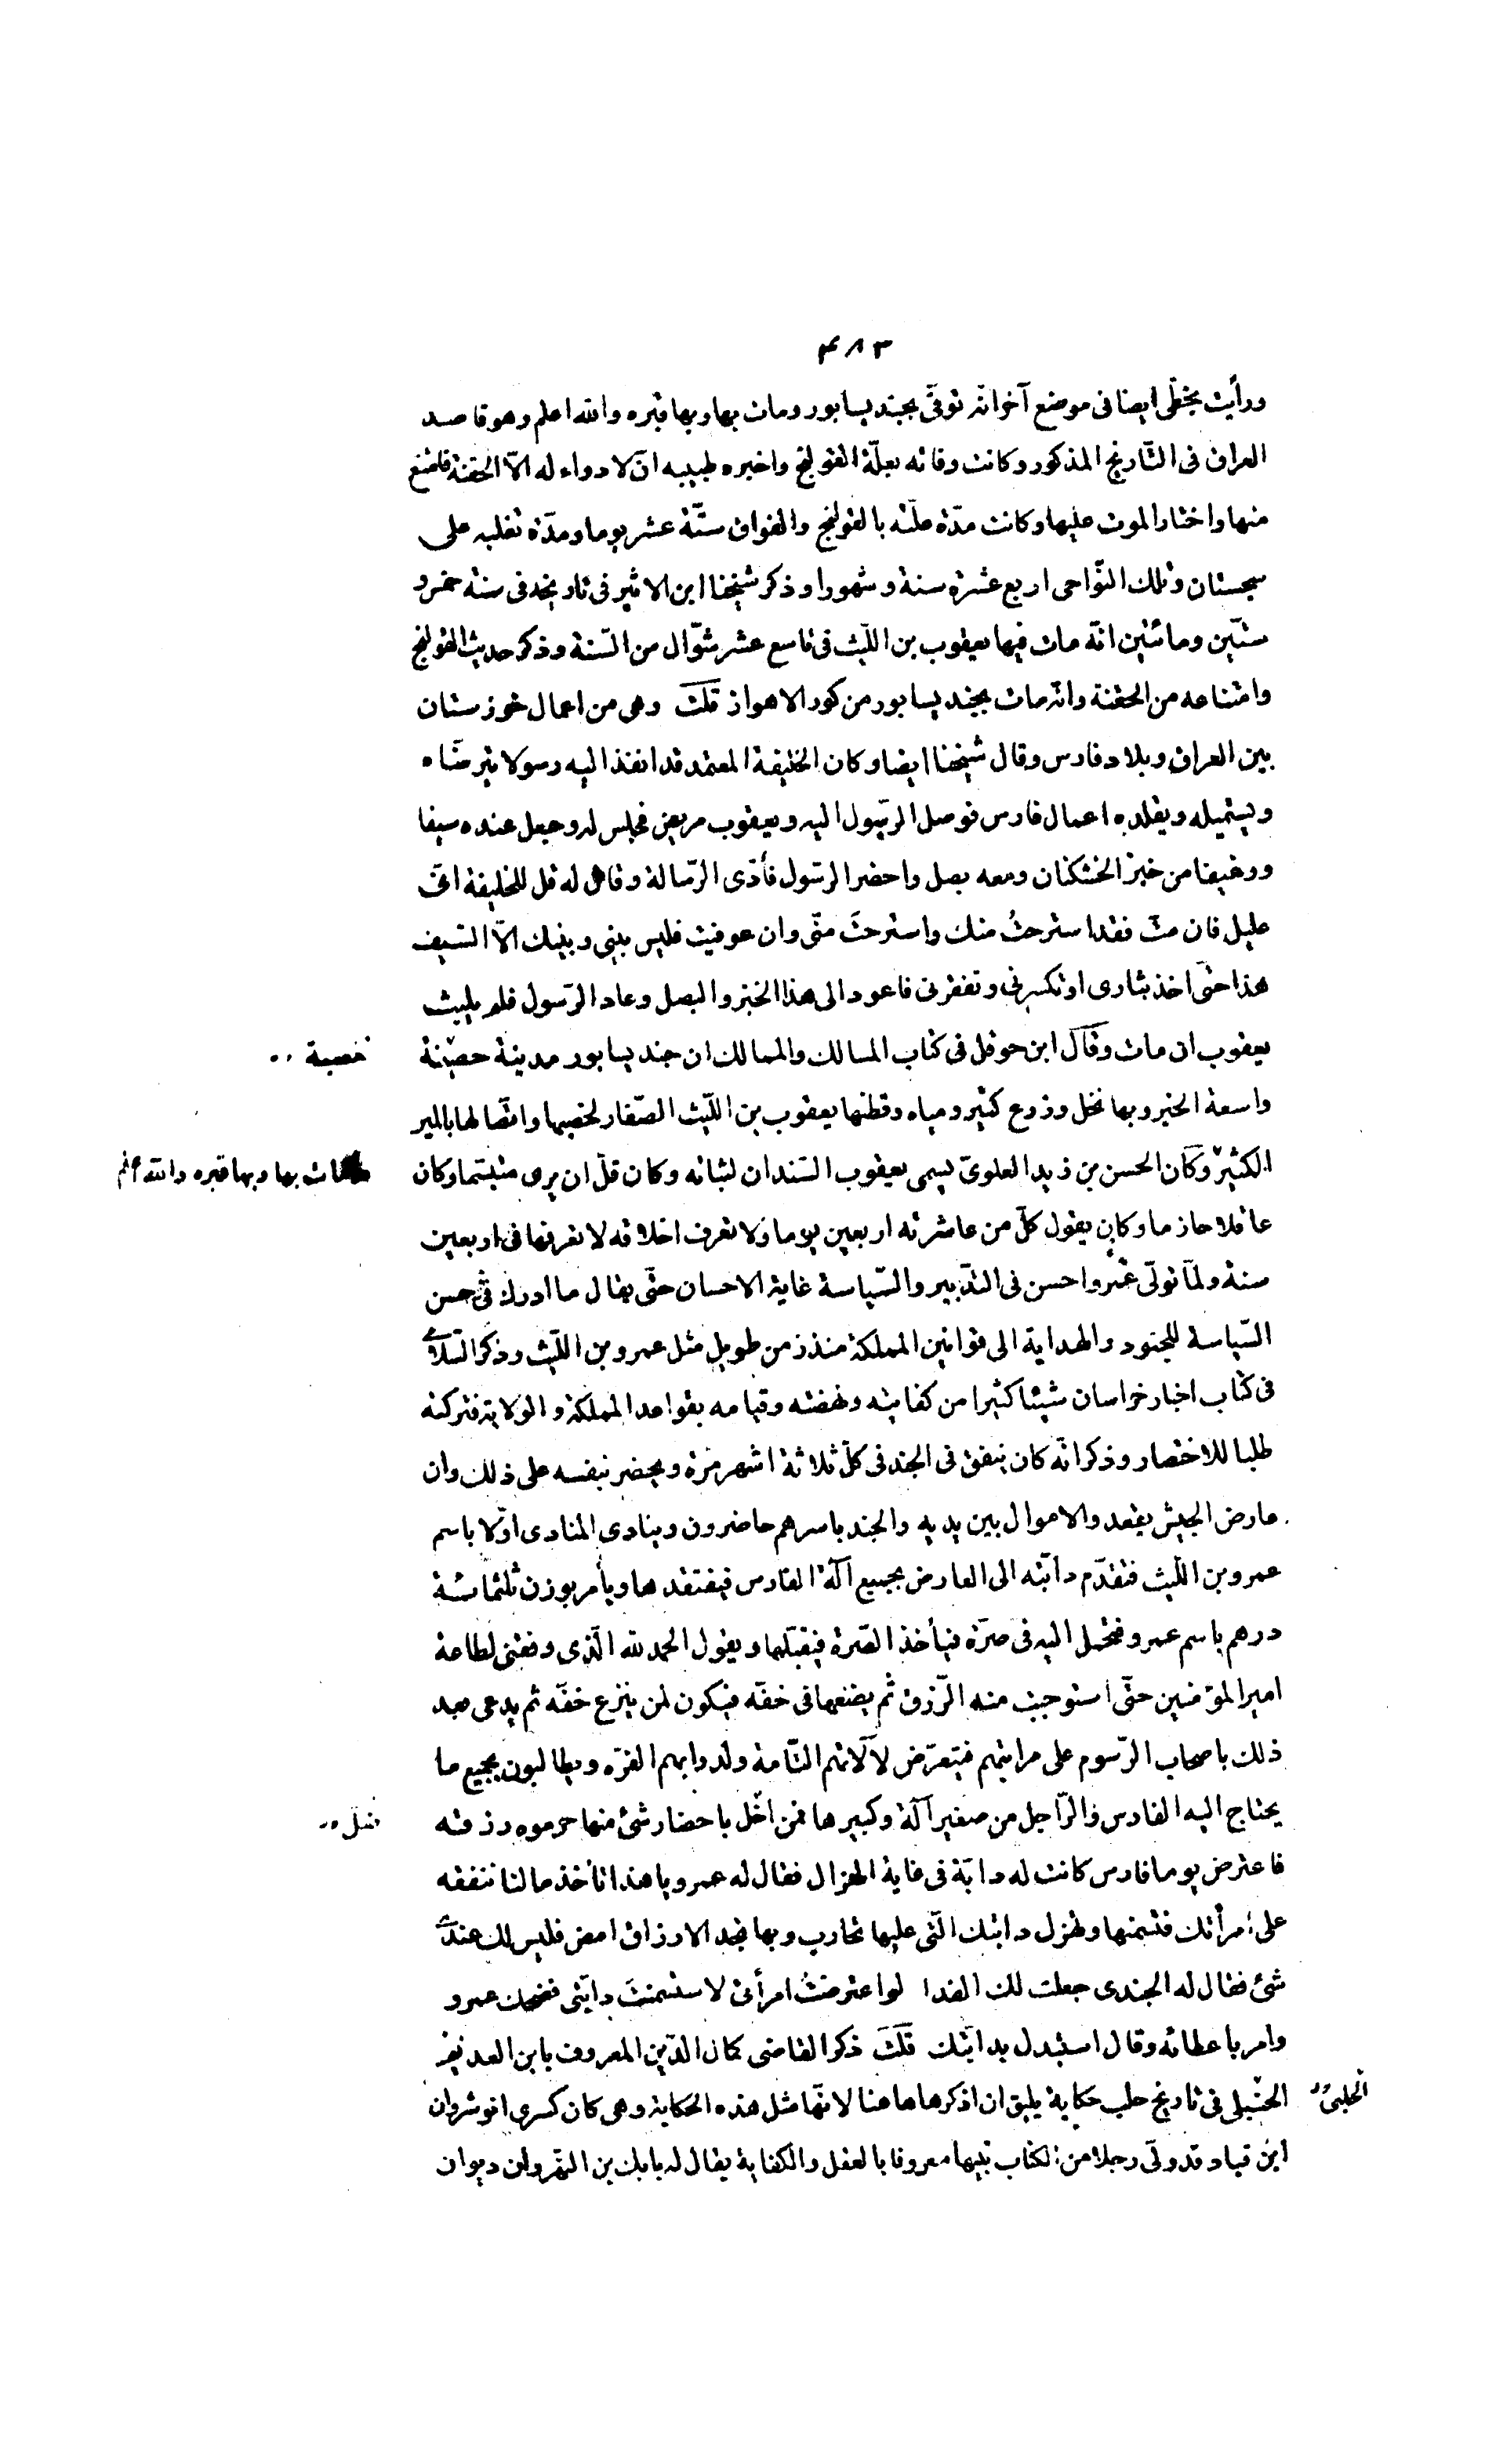 ٤٨٣
ورأيت بخطّى ايضا فى موضع آخر انّه توفّى بجند يسابور ومات بها وبها قبره والله اعلم وهو قاصد
العراق فى التّاريخ المذكور وكانت وفاته بعلّة القولنج واخبره طبيبه ان لا دواء له الاّ الحقنة فامتنع
منها واختار الموت عليها وكانت مدّة علّته بالقولنج والفواق ستّة عشر يوما ومدّة تغلبه على
سجستان وتلك النّواحى اربع عشرة سنة وشهورا وذكر شيخنا ابن الاثير فى تاريخه فى سنة خمس و
ستّين ومائتين انّه مات فيها يعقوب بن اللّيث فى تاسع عشر شوّال من السّنة وذكر حديث القولنج
وامتناعه من الحقنة وانّه مات بجند يسابور من كور الاهواز قلت وهى من اعمال خوزستان
بين العراق وبلاد فارس وقال شيخنا ايضا وكان الخليفة المعتمد قد انفذ اليه رسولا يترضّاه
ويستميله ويقلده اعمال فارس فوصل الرّسول اليه ويعقوب مريض فجلس له وجعل عنده سيفا
ورغيفا من خبز الخشكنان ومعه بصل واحضر الرّسول فأدّى الرّسالة وقال له قل للخليفة انّى
عليل فان متّ فقد استرحتُ منك واسترحتَ منّى وان عوفيت فليس بينى وبينك الاّ السّيف
هذا حتّى اخذ بثارى او تكسرنى وتفقرنى فاعود الى هذا الخبز والبصل وعاد الرّسول فلم يلبث
يعقوب ان مات وقال ابن حوقل فى كتاب المسالك والممالك ان جند يسابور مدينة حصينة
خصبة
واسعة الخير وبها نخل وزرع كثير ومياه وقطنها يعقوب بن اللّيث الصّفار لخصبها واتّصالها بالمير
الكثيرة وكان الحسن بن زيد العلوىّ يسمى يعقوب السّندان لثباته وكان قلّ ان يرى متبسّما وكان
مات بها وبها قبره والله اعلم
عاقلا حازما وكان يقول كلّ من عاشرته اربعين يوما ولا تعرف اخلاقه لا تعرفها فى اربعين
سنة ولمّا تولّى عمرو احسن فى التّدبير والسّياسة غاية الاحسان حتّى يقال ما ادرك فى حسن
السّياسة للجنود والهداية الى قوانين المملكة منذ زمن طويل مثل عمرو بن اللّيث وذكر السّلامى
فى كتاب اخبار خراسان شيئا كثيرا من كفايته ونهضته وقيامه بقواعد المملكة والولاية فتركته
طلبا للاختصار وذكر انّه كان ينفق فى الجند فى كلّ ثلاثة اشهر مرّة ويحضر بنفسه على ذلك وان
عارض الجيش يقعد والاموال بين يديه والجند باسرهم حاضرون وينادى المنادى اوّلا باسم
عمرو بن اللّيث فتقدّم دابّته الى العارض بجميع آلة الفارس فيفتقدها ويأمر بوزن ثلثمائة
درهم باسم عمرو فتحمل اليه فى صرّة فيأخذ الصّرة فيقبّلها ويقول الحمد لله الّذى وفقنى لطاعة
امير المؤمنين حتّى استوجبت منه الرّزق ثم يضعها فى خفّه فيكون لمن ينزع خفّه ثم يدعى بعد
ذلك باصحاب الرّسوم على مراتبهم فيتعرّض لآلاتهم التّامة ولدوابهم الفرّه ويطالبون بجميع ما
يحتاج اليه الفارس والرّاجل من صغير آلة وكبيرها فمن اخلّ باحضار شئ منها حرموه رزقه
فاعترض يوما فارس كانت له دابّة فى غاية الهزال فقال له عمرو يا هذا تأخذ مالنا تنفقه
على امرأتك فتسمنها وتهزل دابتك الّتى عليها تحارب وبها تجد الارزاق امض فليس لك عندى
شئ فقال له الجندى جعلت لك الفدا لو اعترضتَ امرأتى لاستسمنتَ دابّتى فضحك عمرو
وامر باعطائه وقال استبدل بدابّتك قلت ذكر القاضى كمال الدّين المعروف بابن العديم
الحنبلى فى تاريخ حلب حكاية يليق ان اذكرها هاهنا لانّها مثل هذه الحكاية وهى كان كسرى انوشروان
الحلبىّ
ابن قباد قد ولّى رجلا من الكتّاب نبيها معروفا بالعقل والكفاية يقال له بابك بن النّهروان ديوان